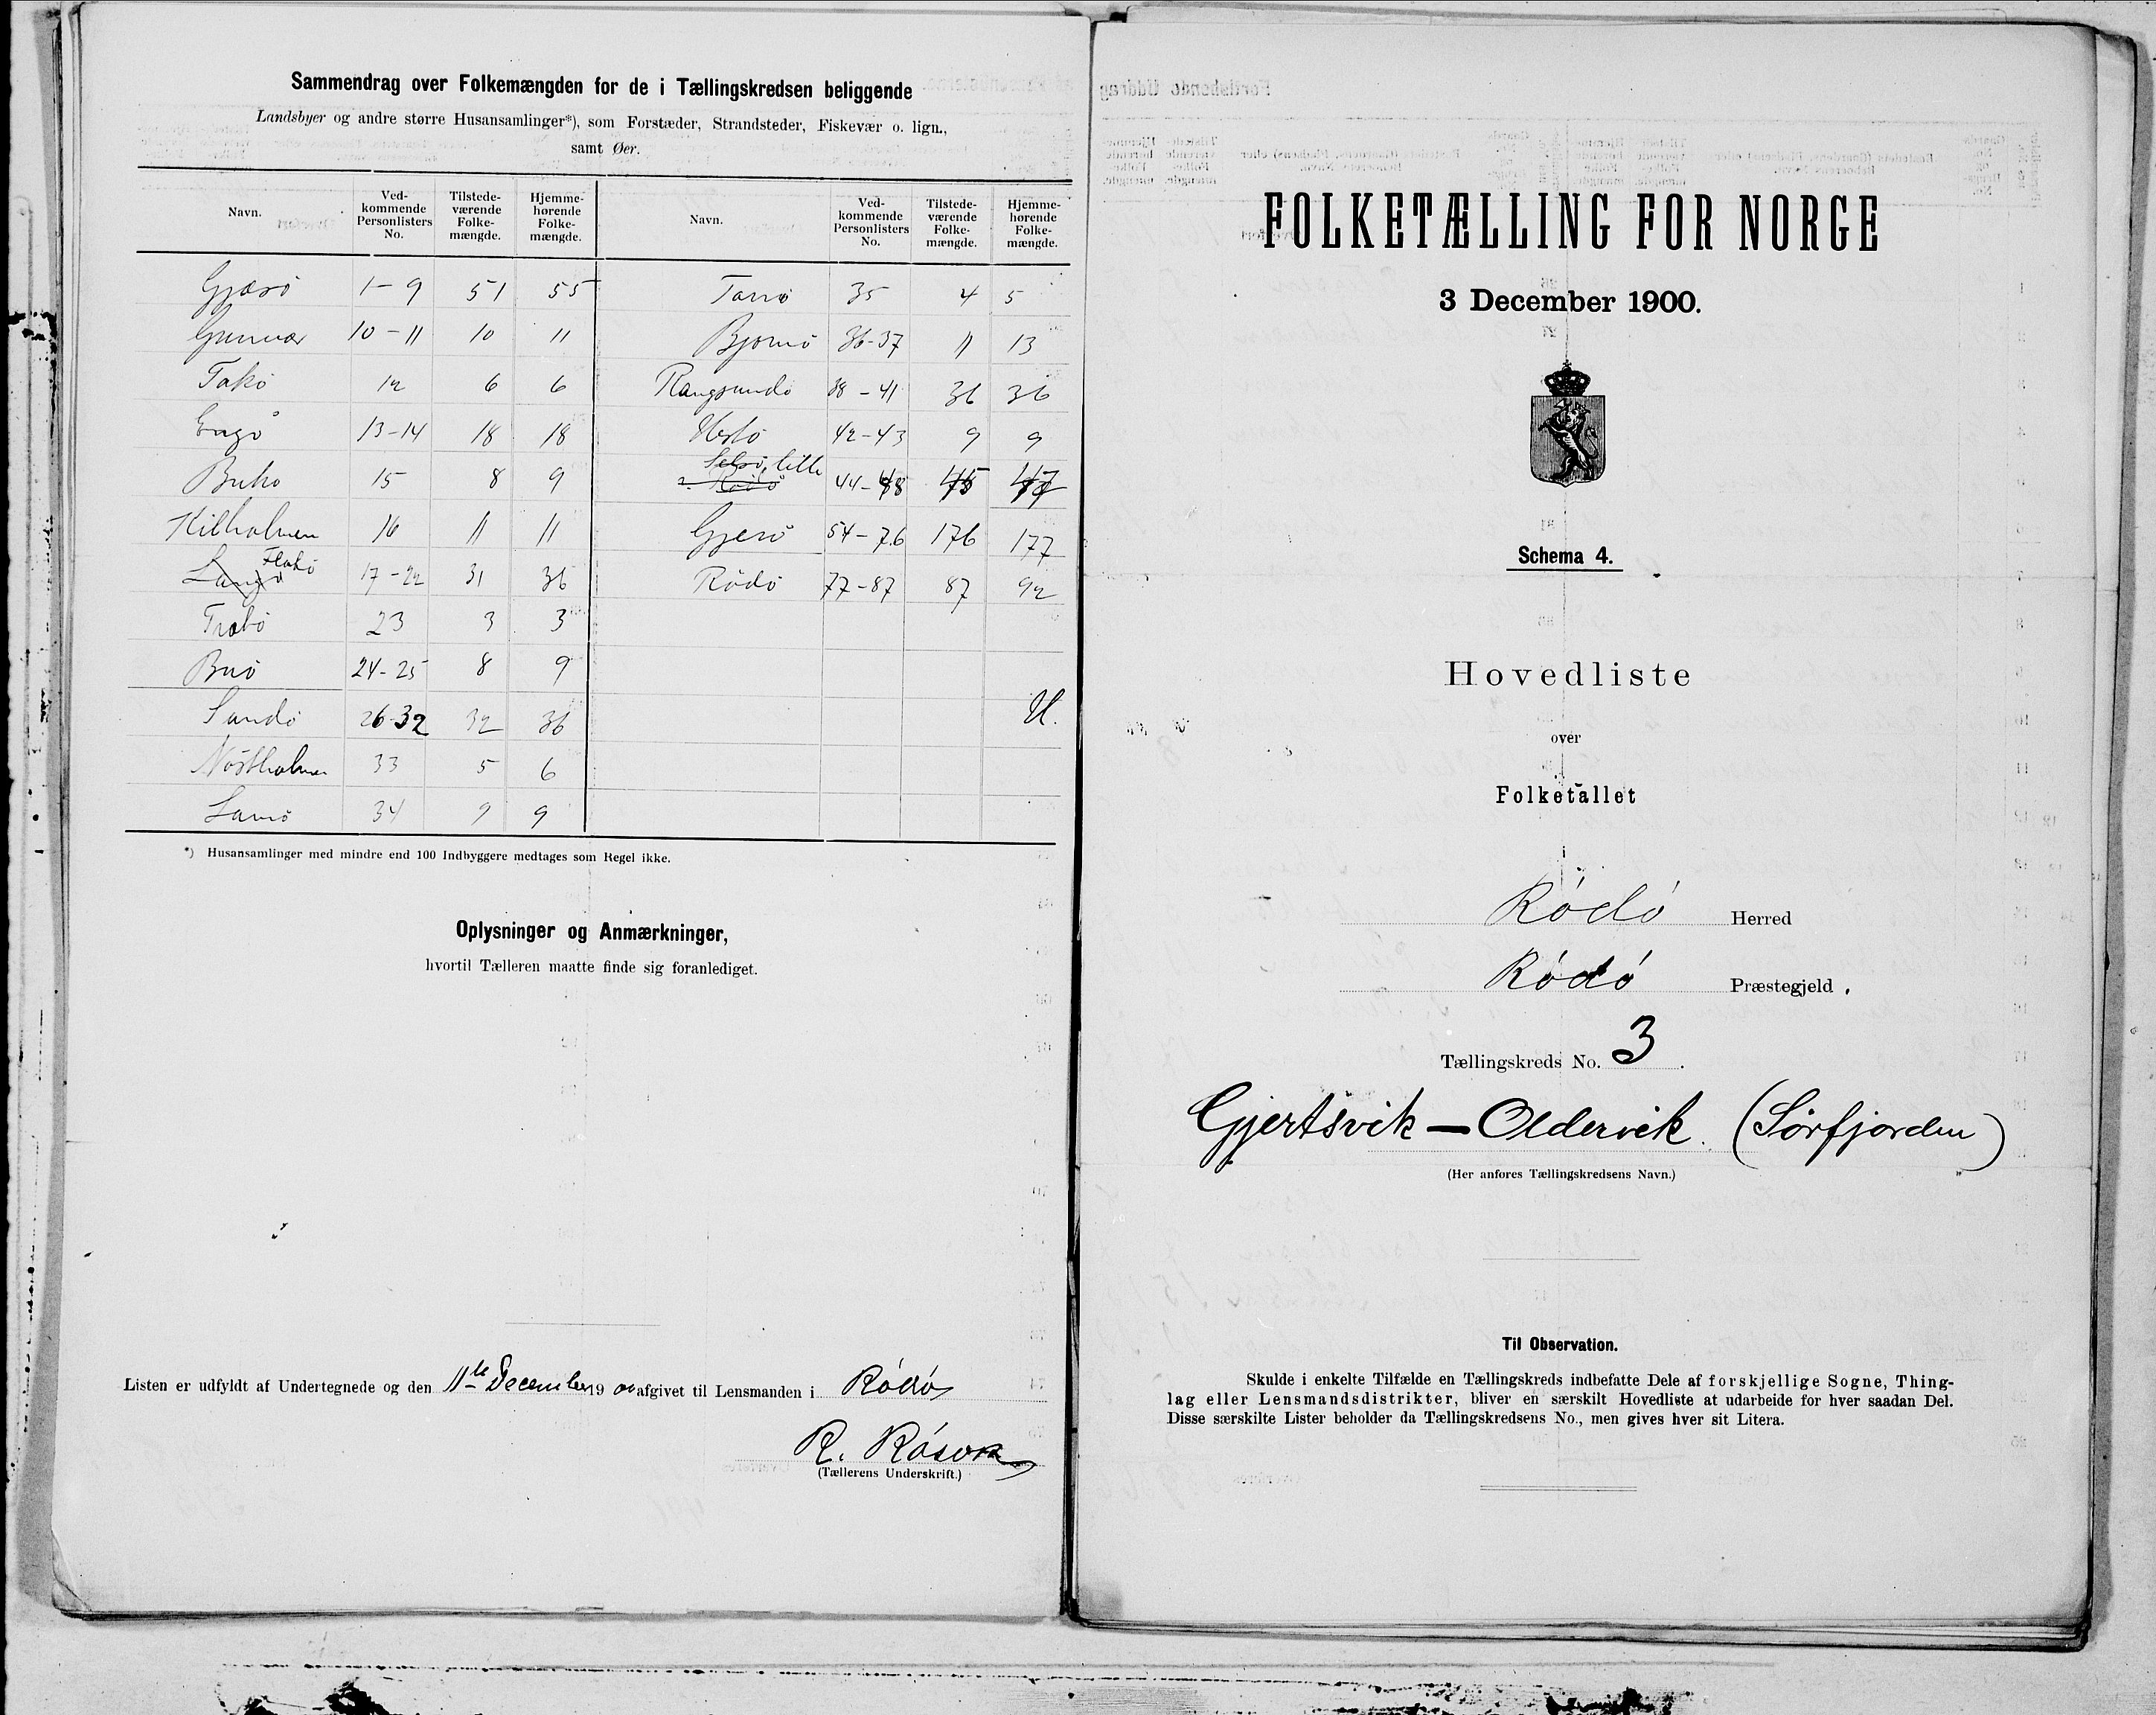 Sammendrag over Folkemængden for de i Tællingskredsen beliggende
Landsbyer og andre større Husansamlinger*), som Forstæder, Strandsteder, Fiskevær o. lign.,
samt Øer.
Navn. Ved-kommende Personlisters No. Tilstede-værende Folke-mængde. Hjemme-hørende Folke-mængde. Navn. Ved-kommende Personlisters No. Tilstede-værende Folke-mængde. Hjemme-hørende Folke-mængde.
Gjæsö 1-9 51 55 35 4 5
10-11 10 11 36-37 11 13
12 6 6 Rangsundö 38-41 36 36
Engö 13-14 18 18 Hestö 42-43 9 9
15 8 9 Selsö, lille 44-
Kilholmen 16 11 11 Gjerö 54-76 176 177
Flatö 17-22 31 36 Rödö 77-87 87 92
23 3 3
Buö 24-25 8 9
Sandö 26-32 32 36 U.
Nöstholmen 33 5 6
34 9 9
*) Husansamlinger med mindre end 100 Indbyggere medtages som Regel ikke.
Oplysninger og Anmærkninger,
hvortil Tælleren maatte finde sig foranlediget.
Listen er udfyldt af Undertegnede og den 11te December 1900 afgivet til Lensmanden i Rödö
R. Rösok
(Tællerens Underskrift.)
FOLKETÆLLING FOR NORGE
3 December 1900.
Schema 4.
Hovedliste
over
Folketallet
i
Rödö Herred
Rödö Præstegjeld.
Tællingskreds No. 3.
Gjertsvik — Oldervik. (Sörfjorden)
(Her anføres Tællingskredsens Navn.)
Til Observation.
Skulde i enkelte Tilfælde en Tællingskreds indbefatte Dele af forskjellige Sogne, Thing-
lag eller Lensmandsdistrikter, bliver en særskilt Hovedliste at udarbeide for hver saadan Del.
Disse særskilte Lister beholder da Tællingskredsens No., men gives hver sit Litera.